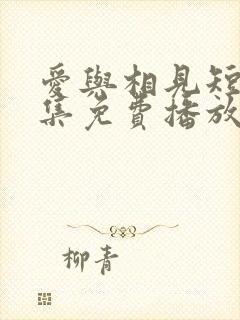 愛與相見短
集免費播放
柳青